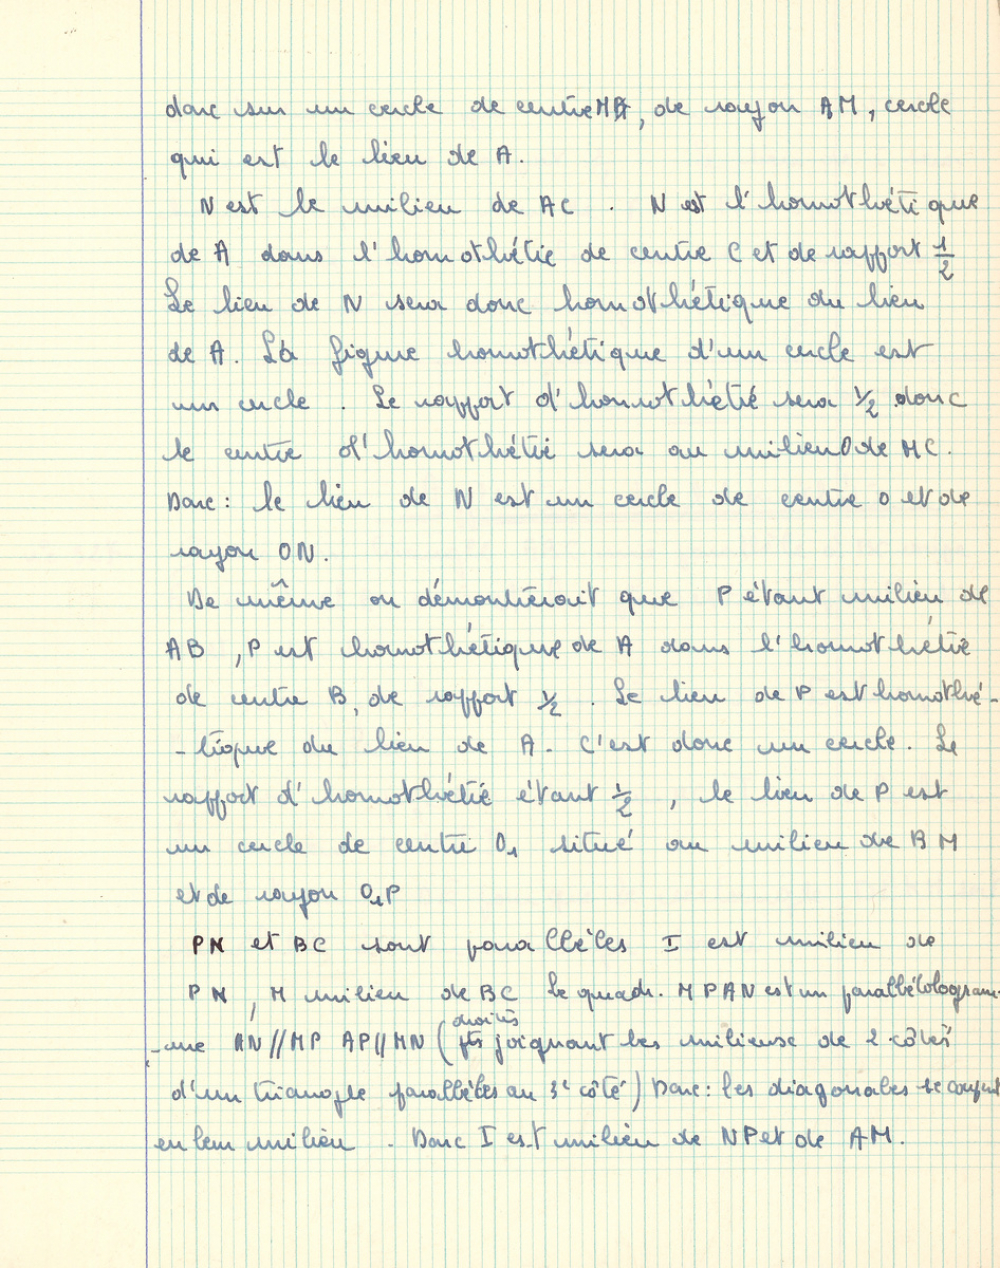 donc sur un cercle de centre M, de rayon AM, cercle
qui est le lieu de A.
N est le milieu de AC. N est l'homothétique
de A dans l'homothétie de centre C et de rapport 1/2
Le lieu de N sera donc homothétique du lieu
de A. La figure homothétique d'un cercle est
un cercle. Le rapport d'homothétie sera 1/2 donc
le centre d'homothétie sera au milieu O de MC.
Donc : le lieu de N est un cercle de centre O et de
rayon ON.
De même on démontrerait que P étant milieu de
AB, P est homothétique de A dans l'homothétie
de centre B, de rapport 1/2. Le lieu de P est homothé-
-tique du lieu de A. C'est donc un cercle. Le
rapport d'homothétie étant 1/2, le lieu de P est
un cercle de centre O1 situé au milieu de BM
et de rayon O1P
PN et BC sont parallèles I est milieu de
PN, M milieu de BC le quadr. MPAN est un parallélologram-
-me AN//MP AP//MN (droites joignant les milieux de 2 côtés
d'un triangle parallèles au 3e côté) Donc : les diagonales se coupent
en leur milieu. Donc I est milieu de NP et de AM.